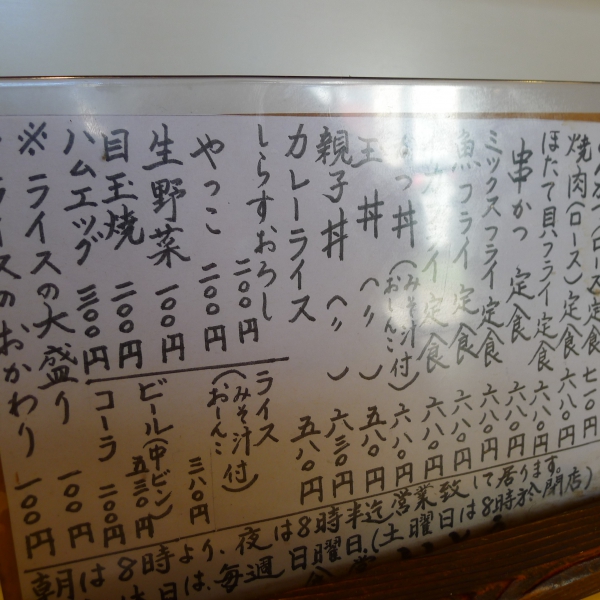 焼肉(ロース)定食 六八〇円
ほたて貝フライ定食 六八〇円
串かつ 定食 五八〇円
ミックスフライ定食 六八〇円
魚フライ 定食 六八〇円
フライ定食 六八〇円
かつ丼(みそ汁付 おしんこ) 六八〇円
玉丼(〃) 五八〇円
親子丼(〃) 六三〇円
カレーライス 五八〇円
しらすおろし 二〇〇円
やっこ 二〇〇円
生野菜 一〇〇円
目玉焼 二〇〇円
ハムエッグ 三〇〇円
ライス(みそ汁付 おしんこ) 三八〇円
ビール(中ビン) 五三〇円
コーラ 二〇〇円
※ライスの大盛り 一〇〇円
ライスのおかわり 一〇〇円
朝は8時より、夜は8時半迄営業致して居ります。
日は、毎週日曜日、(土曜日は8時於閉店)